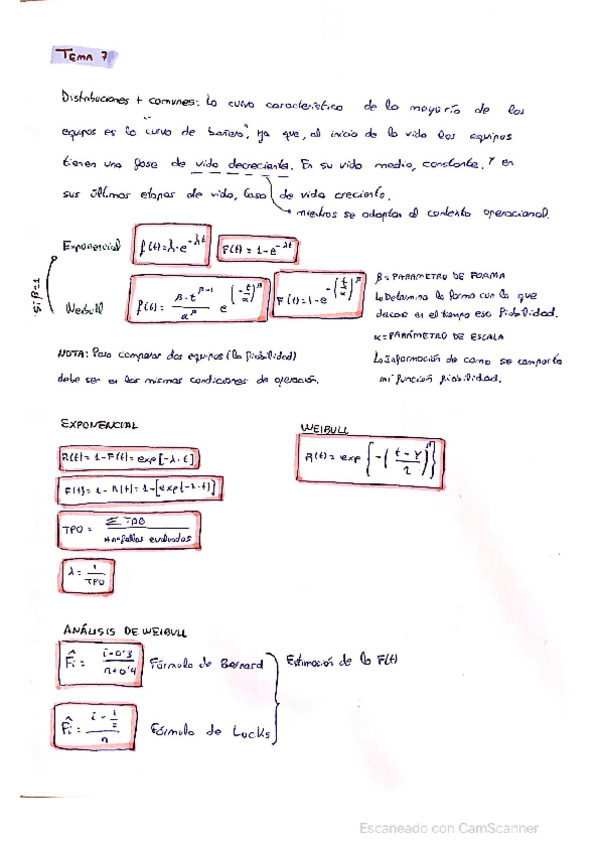 TEMA 7
Distribuciones + comunes: La curva característica de la mayoría de los
equipos es la "curva de bañera", ya que, al inicio de la vida los equipos
tienen una fase de vida decreciente. En su vida media, constante. Y en
sus últimas etapas de vida, tasa de vida creciente.
mientras se adaptan al contexto operacional.
Exponencial f(t)=λ·e^{-λt} F(t)=1-e^{-λt}
Weibull f(t)= \frac{β·t^{β-1}}{α^β} e^{(-\frac{t}{α})^β} F(t)=1-e^{-(\frac{t}{α})^β}
β=PARÁMETRO DE FORMA
Determina la forma con la que
decae en el tiempo esa fiabilidad.
α=PARÁMETRO DE ESCALA
Información de como se comporta
mi función fiabilidad.
NOTA: Para comparar dos equipos (la fiabilidad)
debe ser en las mismas condiciones de operación.
EXPONENCIAL
R(t)= 1-F(t)= exp[-λ.t]
F(t)= 1-R(t)= 1-[exp(-λ.t)]
TPO = \frac{Σ TBO}{nº fallas evaluadas}
λ= \frac{1}{TPO}
WEIBULL
R(t)= exp{-(\frac{t-γ}{η})^β}
ANÁLISIS DE WEIBULL
F̂i = \frac{i-0'3}{n+0'4} Fórmula de Bernard
Estimación de la F(t)
F̂i = \frac{i-\frac{1}{2}}{n} Fórmula de Locks
Escaneado con CamScanner